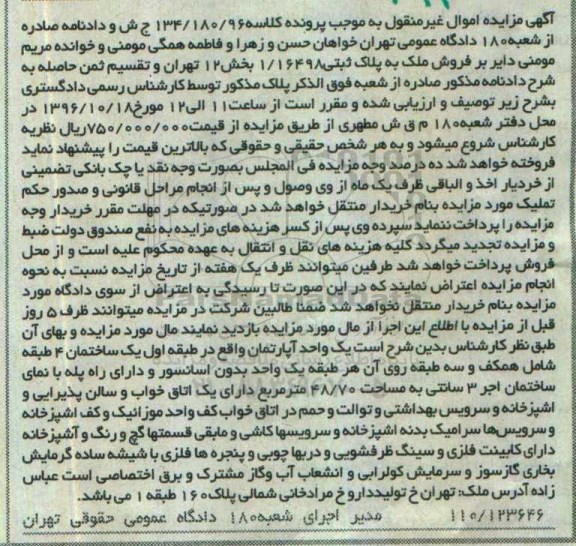 آگهی مزایده اموال غیرمنقول به موجب پرونده کلاسه۱۳۴/۱۸۰/۹۶ ج ش و دادنامه صادره
از شعبه۱۸۰ دادگاه عمومی تهران خواهان حسن و زهرا و فاطمه همگی مومنی و خوانده مریم
مومنی دایر بر فروش ملک به پلاک ثبتی۱/۱۶۴۹۸ بخش۱۲ تهران و تقسیم ثمن حاصله به
شرح دادنامه مذکور صادره از شعبه فوق الذکر پلاک مذکور توسط کارشناس رسمی دادگستری
بشرح زیر توصیف و ارزیابی شده و مقرر است از ساعت۱۱ الی۱۲ مورخ۱۳۹۶/۱۰/۱۸ در
محل دفتر شعبه۱۸۰ م ق ش مطهری از طریق مزایده از قیمت۷۵۰/۰۰۰/۰۰۰ریال نظریه
کارشناس شروع میشود و به هر شخص حقیقی و حقوقی که بالاترین قیمت را پیشنهاد نماید
فروخته خواهد شد ده درصد وجه مزایده فی المجلس بصورت وجه نقد یا چک بانکی تضمینی
از خریدار اخذ و الباقی ظرف یک ماه از وی وصول و پس از انجام مراحل قانونی و صدور حکم
تملیک مورد مزایده بنام خریدار منتقل خواهد شد در صورتیکه در مهلت مقرر خریدار وجه
مزایده را پرداخت ننماید سپرده وی پس از کسر هزینه های مزایده به نفع صندوق دولت ضبط
و مزایده تجدید میگردد کلیه هزینه های نقل و انتقال به عهده محکوم علیه است و از محل
فروش پرداخت خواهد شد طرفین میتوانند ظرف یک هفته از تاریخ مزایده نسبت به نحوه
انجام مزایده اعتراض نمایند که در این صورت تا رسیدگی به اعتراض از سوی دادگاه مورد
مزایده بنام خریدار منتقل نخواهد شد ضمنا طالبین شرکت در مزایده میتوانند ظرف ۵ روز
قبل از مزایده با اطلاع این اجرا از مال مورد مزایده بازدید نمایند مال مورد مزایده و بهای آن
طبق نظر کارشناس بدین شرح است یک واحد آپارتمان واقع در طبقه اول یک ساختمان ۴ طبقه
شامل همکف و سه طبقه روی آن هر طبقه یک واحد بدون آسانسور و دارای راه پله با نمای
ساختمان اجر ۳ سانتی به مساحت ۴۸/۷۰ مترمربع دارای یک اتاق خواب و سالن پذیرایی و
اشپزخانه و سرویس بهداشتی و توالت و حمم در اتاق خواب کف واحد موزائیک و کف اشپزخانه
و سرویس‌ها سرامیک بدنه اشپزخانه و سرویسها کاشی و مابقی قسمتها گچ و رنگ و آشپزخانه
دارای کابینت فلزی و سینگ ظرفشویی و دربها چوبی و پنجره ها فلزی با شیشه ساده گرمایش
بخاری گازسوز و سرمایش کولرابی و انشعاب آب وگاز مشترک و برق اختصاصی است عباس
زاده آدرس ملک: تهران خ تولیدداروخ مرادخانی شمالی پلاک۱۶۰ طبقه ۱ می باشد.
۱۱۰/۱۲۳۶۴۶ مدیر اجرای شعبه۱۸۰ دادگاه عمومی حقوقی تهران